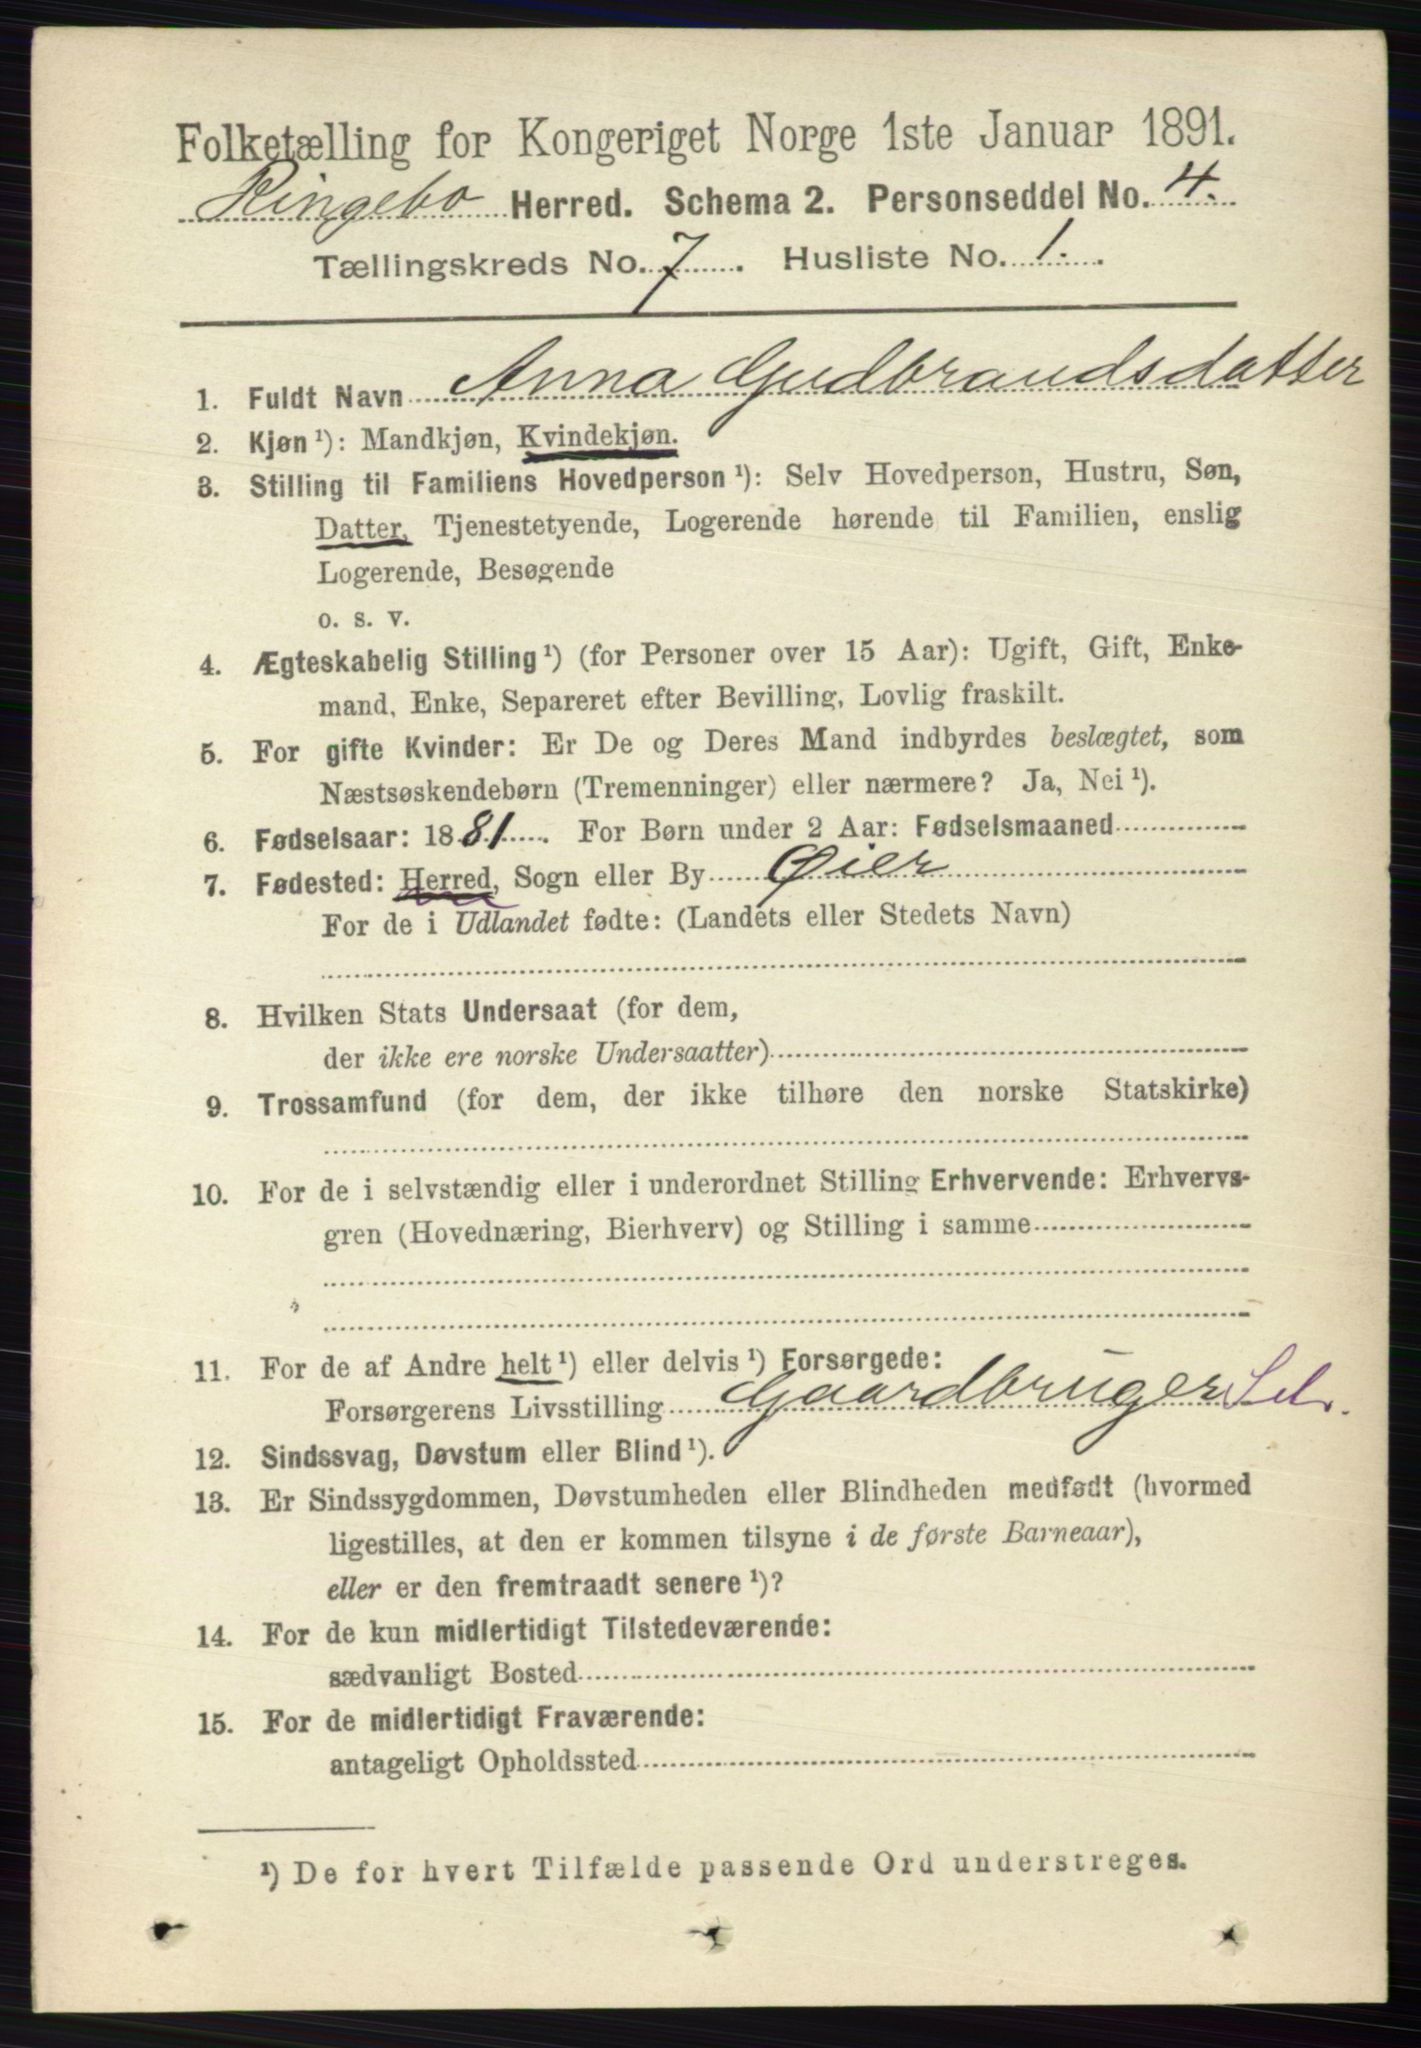 Folketælling for Kongeriget Norge 1ste Januar 1891.
Ringebo Herred. Schema 2. Personseddel No. 4.
Tællingskreds No. 7. Husliste No. 1.
1. Fuldt Navn Anna Gudbrandsdatter
2. Kjøn ¹): Mandkjøn, Kvindekjøn.
3. Stilling til Familiens Hovedperson ¹): Selv Hovedperson, Hustru, Søn,
Datter, Tjenestetyende, Logerende hørende til Familien, enslig
Logerende, Besøgende
o. s. v.
4. Ægteskabelig Stilling ¹) (for Personer over 15 Aar): Ugift, Gift, Enke-
mand, Enke, Separeret efter Bevilling, Lovlig fraskilt.
5. For gifte Kvinder: Er De og Deres Mand indbyrdes beslægtet, som
Næstsøskendebørn (Tremenninger) eller nærmere? Ja, Nei ¹).
6. Fødselsaar: 1881. For Børn under 2 Aar: Fødselsmaaned
7. Fødested: Herred, Sogn eller By Øier
For de i Udlandet fødte: (Landets eller Stedets Navn)
8. Hvilken Stats Undersaat (for dem,
der ikke ere norske Undersaatter)
9. Trossamfund (for dem, der ikke tilhøre den norske Statskirke)
10. For de i selvstændig eller i underordnet Stilling Erhvervende: Erhvervs-
gren (Hovednæring, Bierhverv) og Stilling i samme
11. For de af Andre helt ¹) eller delvis ¹) Forsørgede:
Forsørgerens Livsstilling Gaardbruger
12. Sindssvag, Døvstum eller Blind ¹).
13. Er Sindssygdommen, Døvstumheden eller Blindheden medfødt (hvormed
ligestilles, at den er kommen tilsyne i de første Barneaar),
eller er den fremtraadt senere ¹)?
14. For de kun midlertidigt Tilstedeværende:
sædvanligt Bosted
15. For de midlertidigt Fraværende:
antageligt Opholdssted
¹) De for hvert Tilfælde passende Ord understreges.